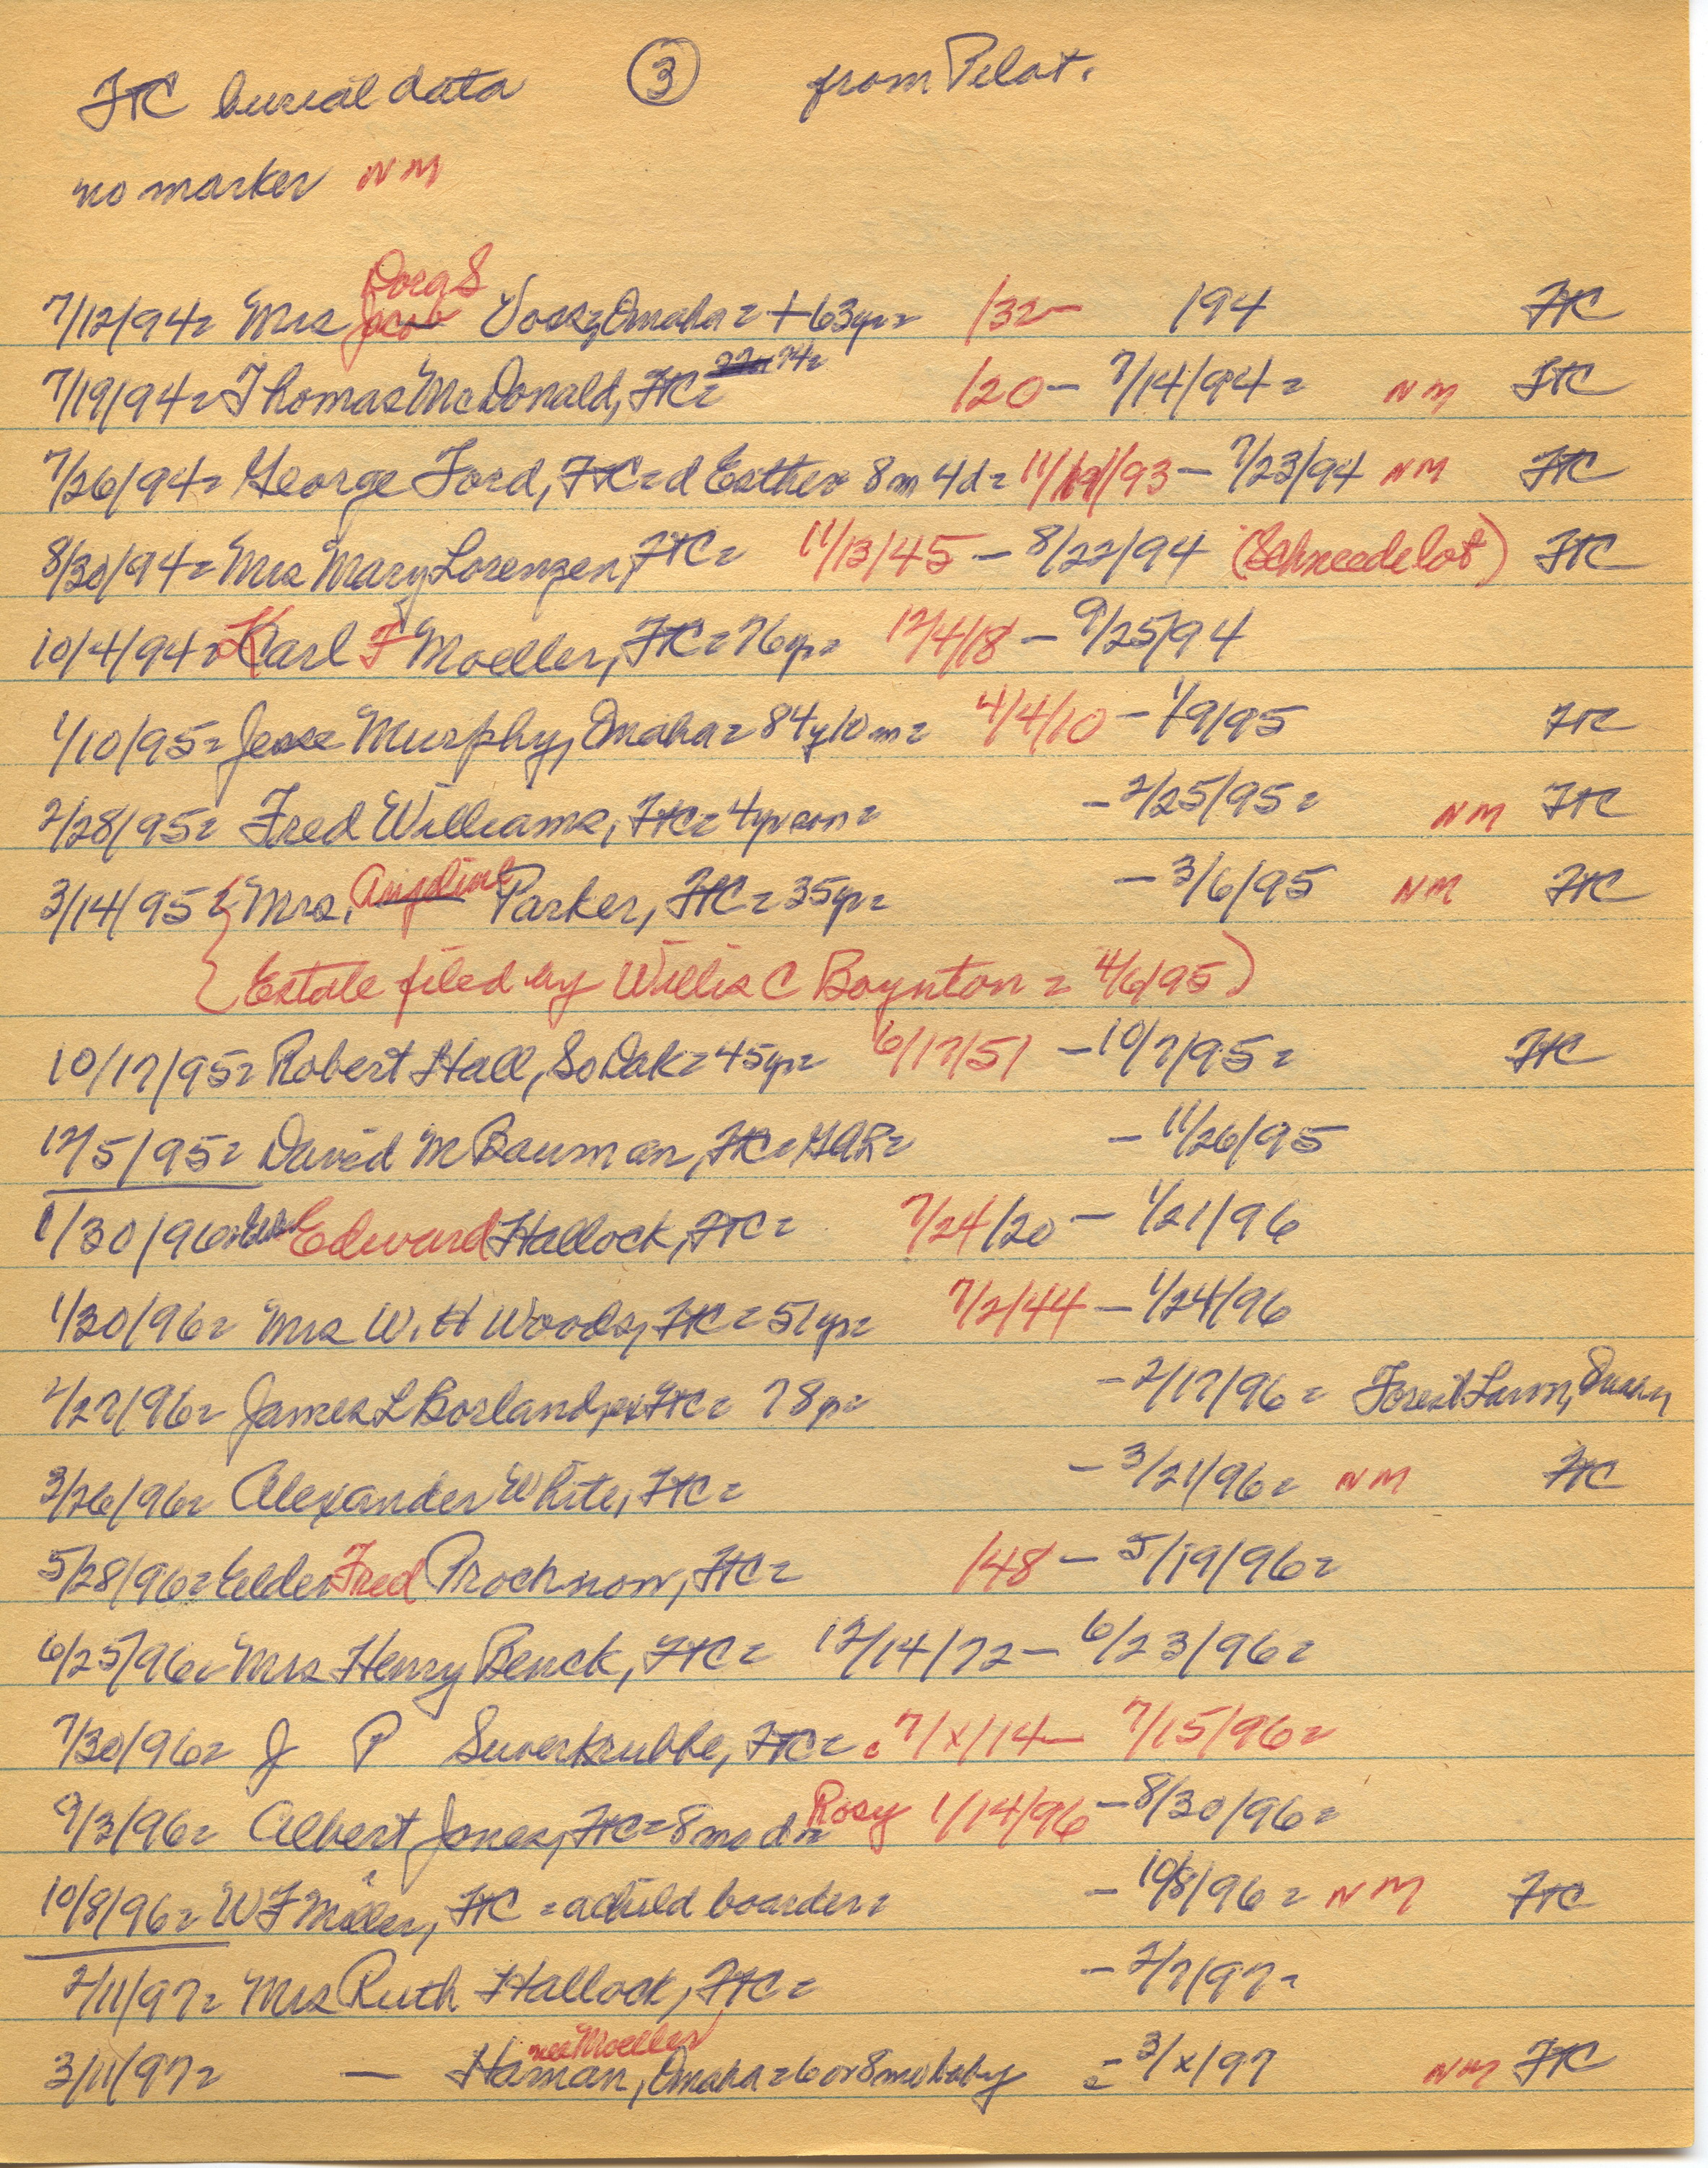 FTC burial data ③ from Pilot.
no marker NM
Dora S
7/12/94= Mrs Jacob Voss, Omaha = +63yr= /32- /94 FTC
7/19/94= Thomas McDonald, FTC= 74= /20- 7/14/94= NM FTC
7/26/94= George Ford, FTC= d Esther 8m 4d= 11/19/93 - 7/23/94 NM FTC
8/30/94= Mrs Mary Lorenzen, FTC= 11/13/45 - 8/22/94 (Schneedelot) FTC
10/4/94= Karl F Moeller, FTC= 76yr= 12/4/18 - 9/25/94
1/10/95= Jesse Murphy, Omaha= 84y10m= 4/4/10 - 1/9/95 FTC
2/28/95= Fred Williams, FTC= 4yr son= - 2/25/95= NM FTC
3/14/95 { Mrs. Angeline Parker, FTC= 35yr= - 3/6/95 NM FTC
{ Estate filed by Willis C Boynton = 4/6/95)
10/17/95= Robert Hall, So Dak= 45yr= 6/17/51 - 10/7/95= FTC
12/5/95= David M Bauman, FTC= GAR= - 11/26/95
1/30/96= Edward Hallock, FTC= 7/24/20 - 1/21/96
1/30/96= Mrs W. H Woods, FTC= 51yr= 7/2/44 - 1/24/96
2/27/96= James L Borland, ex FTC= 78yr= - 2/17/96= Forest Lawn,
3/26/96= Alexander White, FTC= - 3/21/96= NM FTC
5/28/96= Elder Fred Prochnow, FTC= /48 - 5/19/96=
6/25/96= Mrs Henry Benck, FTC= 12/14/72 - 6/23/96=
7/30/96= J P Suverkrubbe, FTC= c 7/x/14 - 7/15/96=
9/3/96= Albert Jones, FTC= 8mo d= Rosy 1/14/96 - 8/30/96=
10/8/96= W F Miller, FTC = a child boarder= - 10/8/96= NM FTC
2/11/97= Mrs Ruth Hallock, FTC= - 2/7/97=
nee Moeller
3/11/97= — Haman, Omaha= 6 or 8 mo baby = 3/x/97 NM FTC